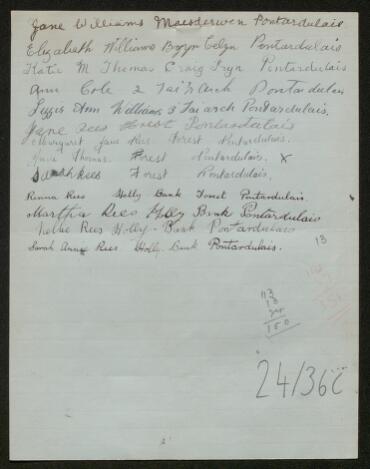 Jane Williams Maesderwen Pontardulais
Elizabeth Williams Bryn Celyn Pontardulais
Katie M Thomas Craig Fryn Pontardulais
Ann Cole 2 Tai'r Arch Pontardulais
Lizzie Ann Williams 3 Tai'r arch Pontardulais.
Jane Rees Forest Pontardulais
Margaret Jane Rees Forest Pontardulais.
Jane Thomas Forest Pontardulais. X
Sarah Rees Forest Pontardulais.
Rees Holly Bank Forest Pontardulais.
Martha Rees Holly Bank Pontardulais
Nellie Rees Holly-Bank Pontardulais
Sarah Anne Rees. Holly. Bank Pontardulais.
13
113
13
24
150
24/36c